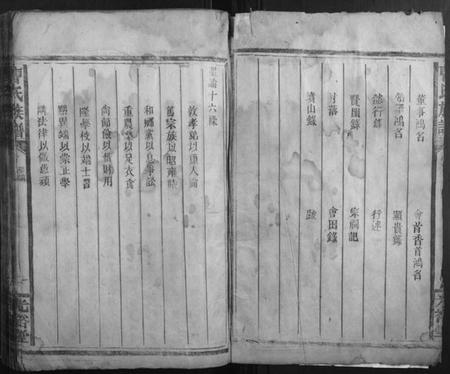 董事鴻名 會首香首鴻名
顯貴錄
誌行錄 行述
賢閫錄 宗祠記
封蔭 會田錄
墳山錄 跋
聖諭十六條
敦孝弟以重人倫
篤宗族以昭雍睦
和鄉黨以息爭訟
重農桑以足衣食
尚節儉以惜財用
隆學校以端士習
黜異端以崇正學
講法律以儆愚頑
氏族譜